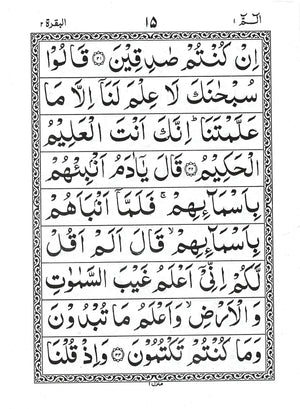 الٓمّٓ ١ ١٥ البقرة ٢
اِنْ كُنْتُمْ صٰدِقِيْنَ ﴿٣١﴾ قَالُوْا
سُبْحٰنَكَ لَا عِلْمَ لَنَآ اِلَّا مَا
عَلَّمْتَنَا ؕ اِنَّكَ اَنْتَ الْعَلِيْمُ
الْحَكِيْمُ ﴿٣٢﴾ قَالَ يٰٓاٰدَمُ اَنْۢبِئْهُمْ
بِاَسْمَآئِهِمْ ۚ فَلَمَّآ اَنْۢبَاَهُمْ
بِاَسْمَآئِهِمْ ۙ قَالَ اَلَمْ اَقُلْ
لَّكُمْ اِنِّيْٓ اَعْلَمُ غَيْبَ السَّمٰوٰتِ
وَالْاَرْضِ ۙ وَاَعْلَمُ مَا تُبْدُوْنَ
وَمَا كُنْتُمْ تَكْتُمُوْنَ ﴿٣٣﴾ وَاِذْ قُلْنَا
منزل ١